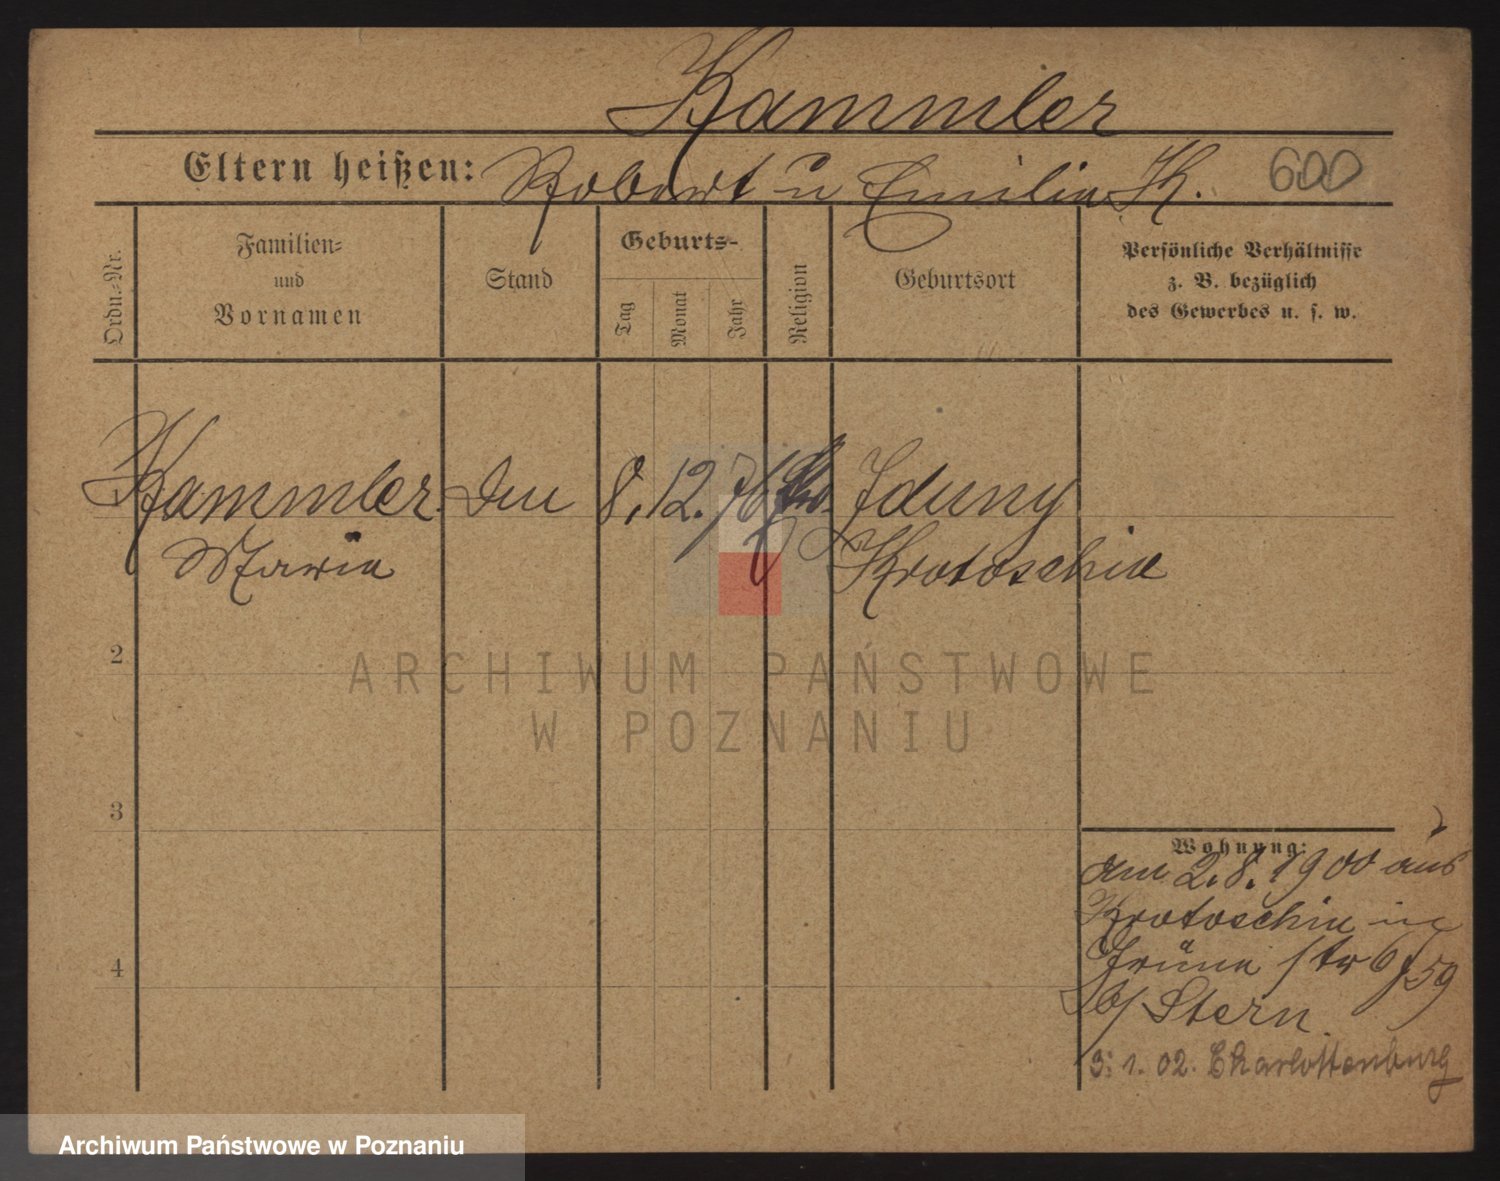 Kammler
Eltern heißen: Robert u Emilie K. 600
Ordn.-Nr.
Familien-
und
Vornamen
Stand
Geburts-
Tag
Monat
Jahr
Religion
Geburtsort
Persönliche Verhältnisse
z. B. bezüglich
des Gewerbes u. s. w.
Kammler 8. 12. 76 Zduny
Marie Krotoschin
2
ARCHIWUM PAŃSTWOWE
W POZNANIU
3
Wohnung:
am 2. 8. 1900 aus
Krotoschin in
Grüne str 6
b/ Stern.
3. 1. 02. Charlottenburg
4
Archiwum Państwowe w Poznaniu